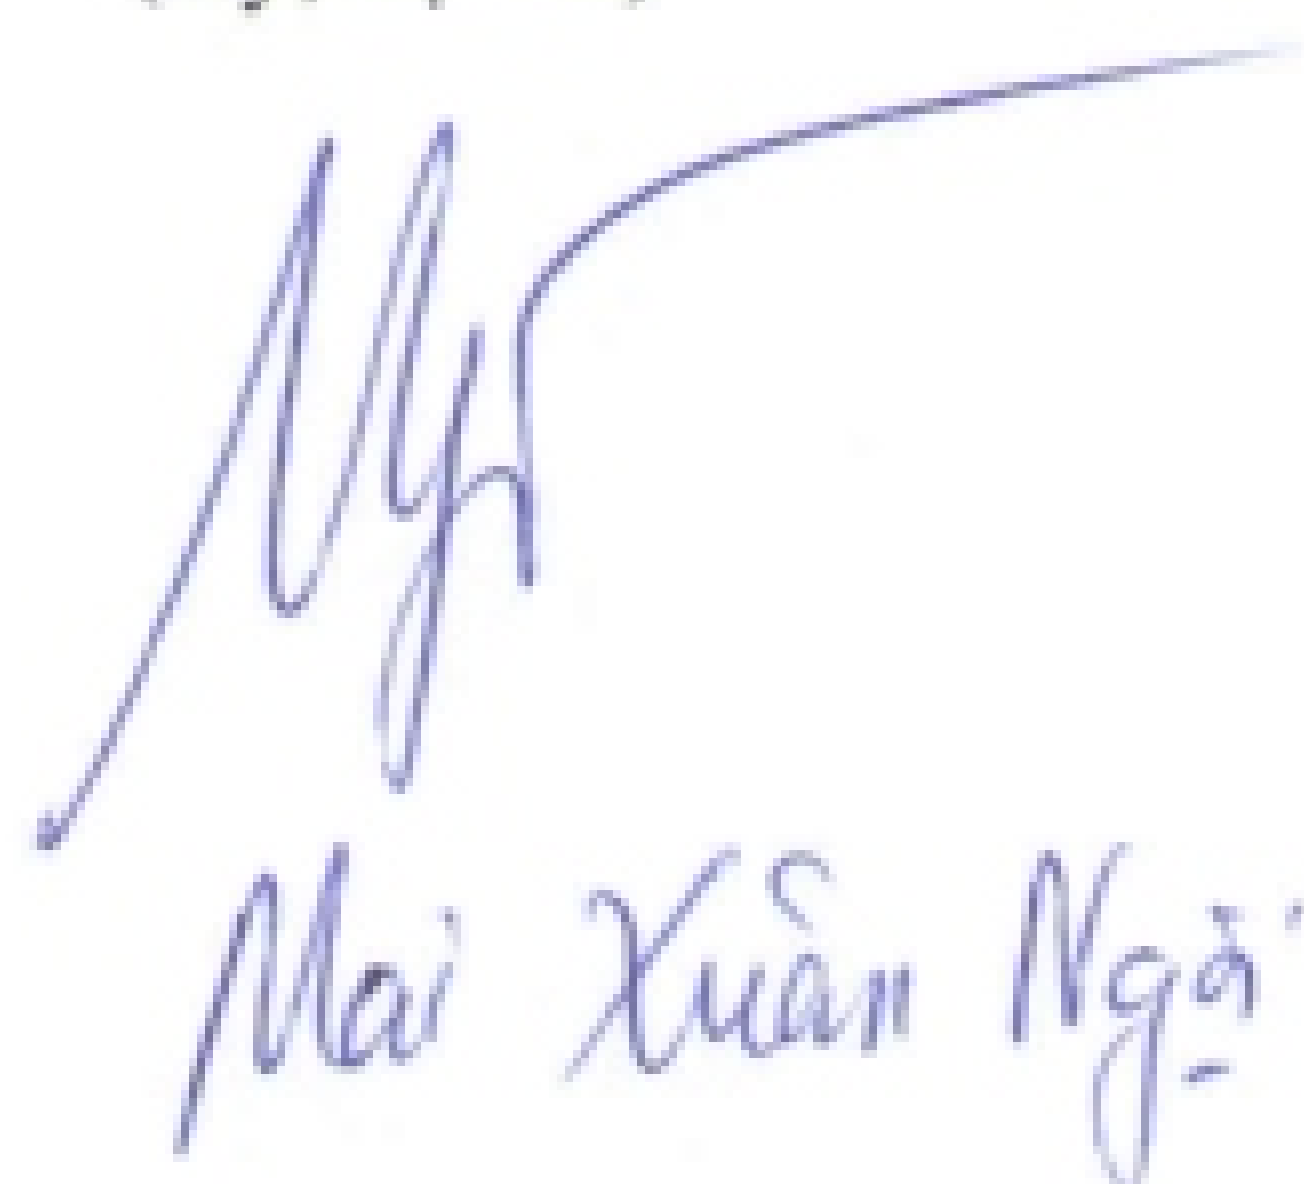 Mai Xuân Ngợi